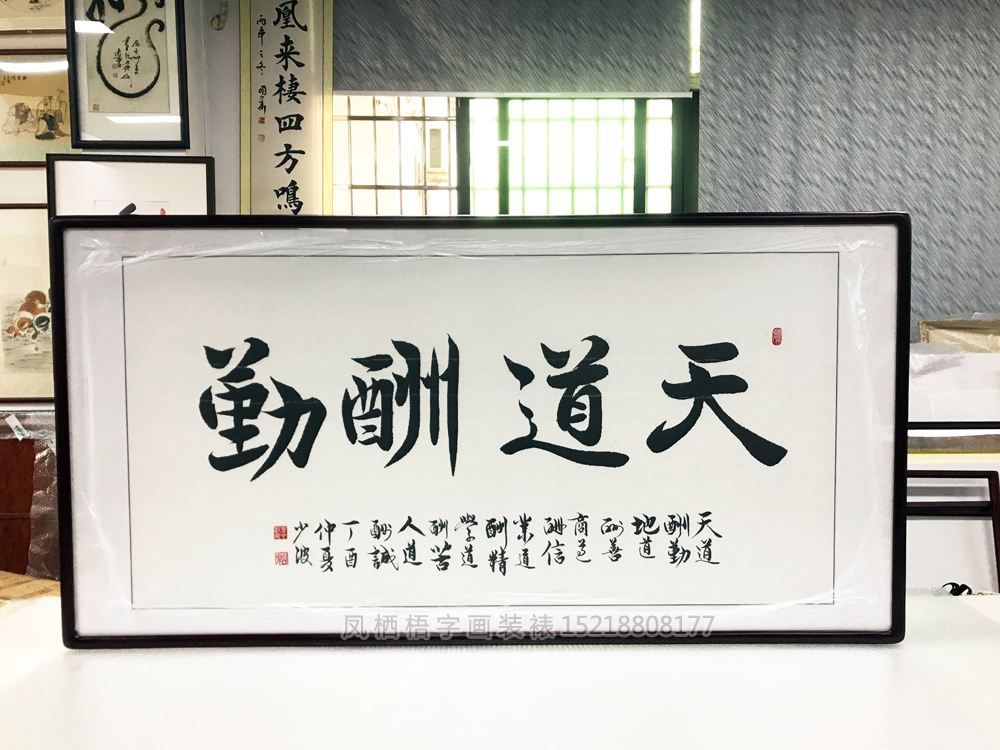 凰来棲四方鳴
丙申之冬
天道酬勤
天道
酬勤
地道
酬善
商道
酬信
業道
酬精
學道
酬苦
人道
酬誠
丁酉
仲夏
少波
凤栖梧字画装裱15218808177